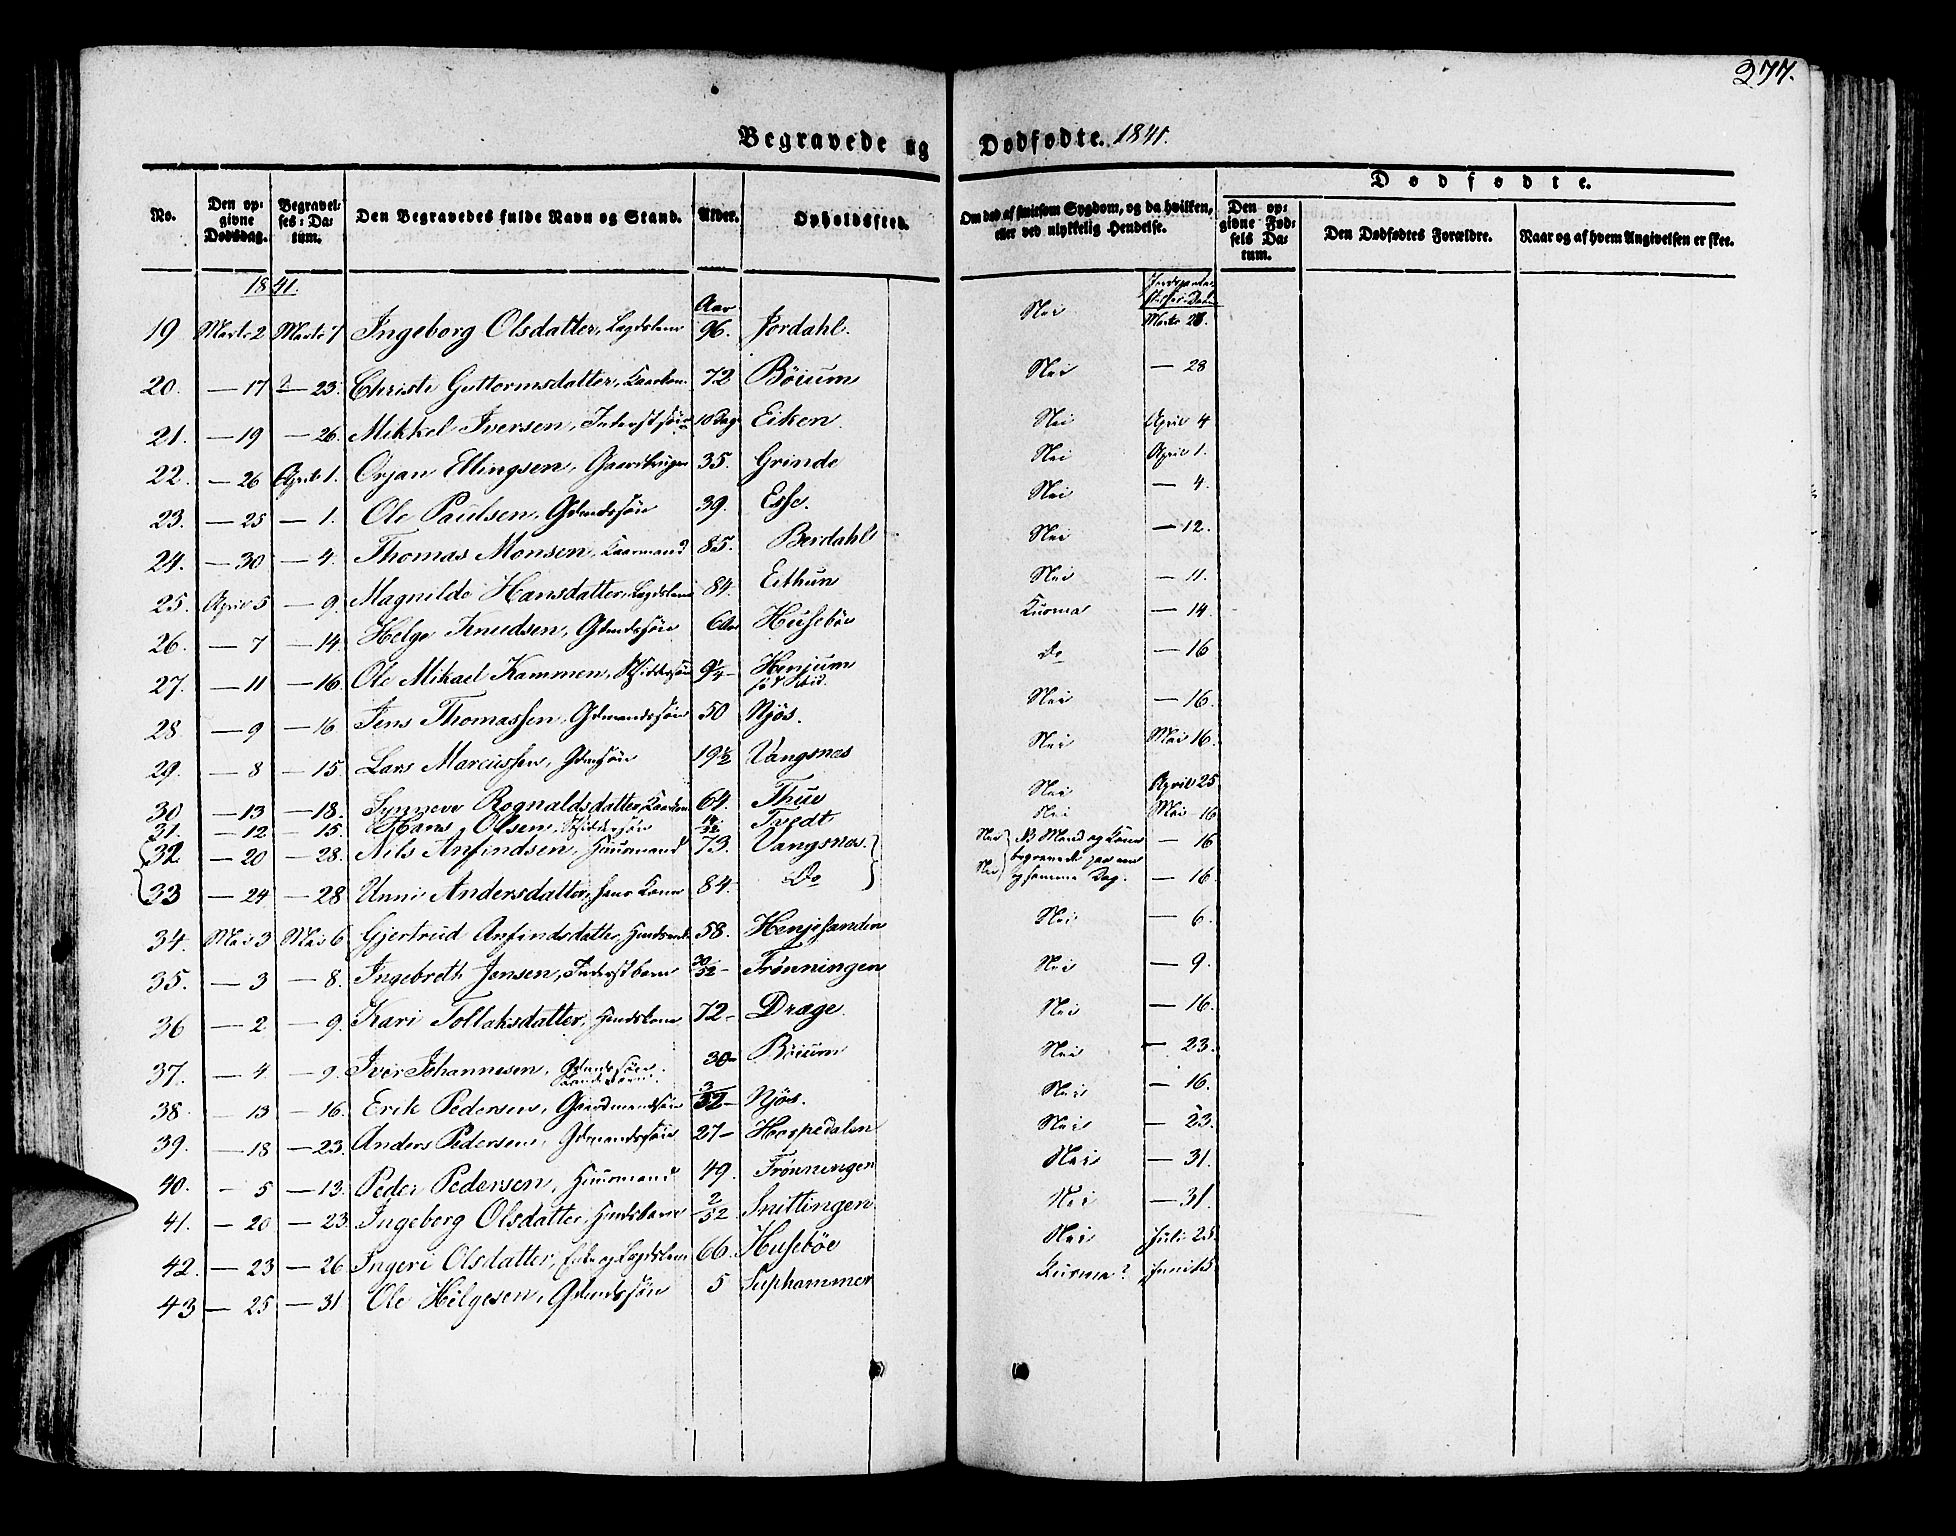 277.
Begravede og Dødfødte. 1841.
No. Den opgivne Dødsdag. Begravelses-Datum. Den Begravedes fulde Navn og Stand. Alder. Opholdssted. Om død af smitsom Sygdom, og da hvilken, eller ved ulykkelig Hendelse. Dødfødte.
Den opgivne Fødsels Datum. Den Dødfødtes Forældre. Naar og af hvem Angivelsen er skeet.
1841. Aar
19 Marts 2 Marts 7 Ingeborg Olsdatter, Lægdslem 96. Fordahl. Nei Marts 28.
20. — 17 — 23. Christi Guttormsdatter, 72 Böium Nei — 28
21. — 19 — 26. Mikkel Iversen, 10 Dag Eiken. Nei April 4
22. — 26 April 1. Orjan Ellingsen, Gaardbruger 35. Grinde Nei April 1.
23. — 25 — 1. Ole Paulsen, Gdmdssön 39. Esse. Nei — 4.
24. — 30 — 4. Thomas Monsen, Kaarmand 85. Berdahl Nei — 12.
25. April 5 — 9 Magnilde Hansdatter, Lægdslem 84. Eithun Nei — 11.
26. — 7 — 14. Helge Knudsen, Gdmdssön Husebøe Kusma — 14
27. — 11 — 16. Ole Mikael Kammen, 9 1/4 Henjum Do — 16
28. — 9 — 16 Jens Thomassen, Gdmandssön 50 Njøs. Nei — 16.
29. — 8 — 15. Lars Marcussen, Gdmssön 19 1/2 Vangsnes Nei Mai 16.
30 — 13 — 18. Synneve Rognaldsdatter, 64. Thue Nei April 25
31. — 12 — 15. Hans Olsen, 14/52 Tvedt Nei Mai 16
32 — 20 — 28. Nils Anfindsen, Huusmand 73. Vangsnes. Nei NB Mand og Kone — 16
begravede paa een
33 — 24 — 28 Unni Andersdatter, hans Kone 84. Do Nei og samme Dag. — 16.
34. Mai 3 Mai 6 Gjertrud Anfindsdatter, 58. Henjesanden Nei — 6.
35. — 3 — 8. Ingebreth Jonsen, Inderstbarn 30/52 Frønningen Nei — 9.
36 — 2 — 9. Kari Tollaksdatter, 72 Drage. Nei — 16.
37. — 4 — 9. Iver Johannesen, Gdmdssön. 30 Böium Nei — 23.
38. — 13 — 16. Erik Pedersen, Gaardmandssön 3/52 Njøs. Nei — 16.
39. — 18 — 23. Anders Pedersen, Gdmandssön 27 Hospedalen Nei — 23.
40. — 5 — 13. Peder Pedersen, Huusmand 49. Frønningen Nei — 31.
41. — 20 — 23 Ingeborg Olsdatter, 2/52 Snittingen Nei — 31.
42. — 23 — 26 Ingeri Olsdatter, Enke og Lægdslem 66. Husebøe Nei Juli 25
43 — 25 — 31 Ole Helgesen, Gdmdssön 5 Suphammer Kusma? Juni 15